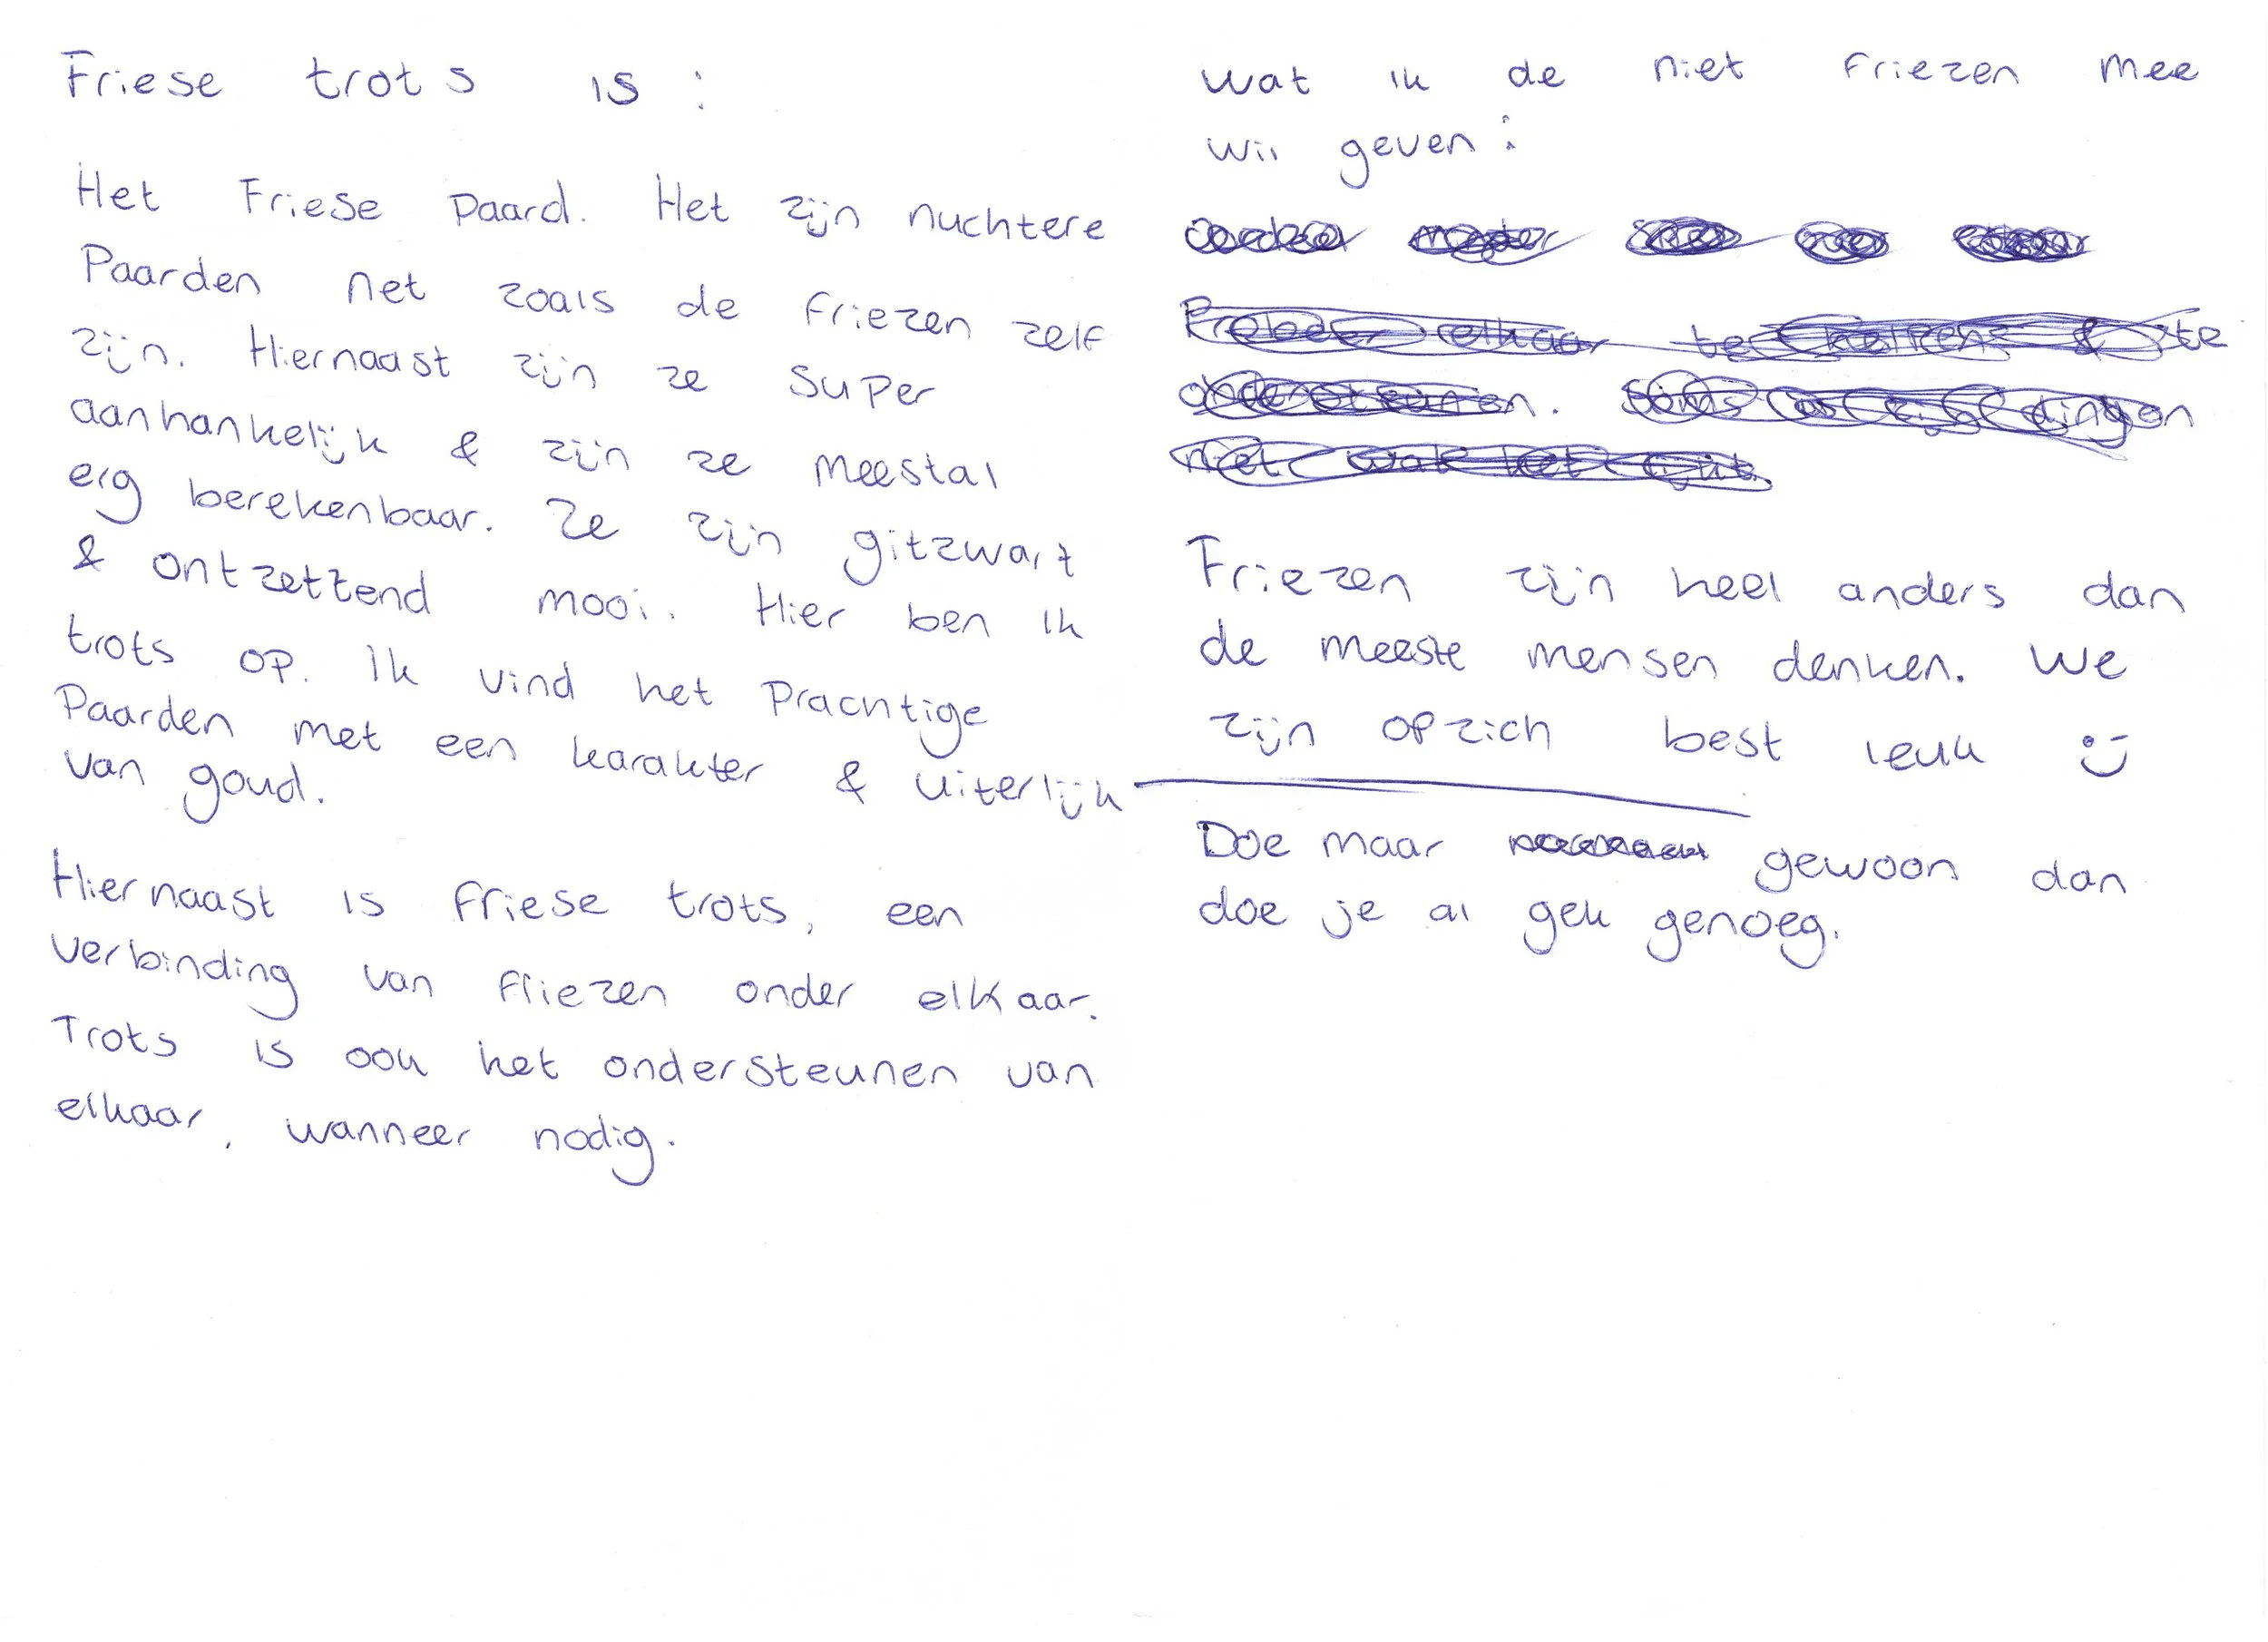 Friese trots is :
Het Friese paard. Het zijn nuchtere
Paarden net zoals de Friezen zelf
zijn. Hiernaast zijn ze super
aanhankelijk & zijn ze meestal
erg berekenbaar. Ze zijn gitzwart
& ontzettend mooi. Hier ben ik
trots op. Ik vind het prachtige
Paarden met een karakter & uiterlijk
van goud.
Hiernaast is Friese trots, een
verbinding van Friezen onder elkaar.
Trots is ook het ondersteunen van
elkaar, wanneer nodig.
wat ik de niet Friezen mee
wil geven :
Friezen zijn heel anders dan
de meeste mensen denken. We
zijn opzich best leuk :)
Doe maar gewoon dan
doe je al gek genoeg.